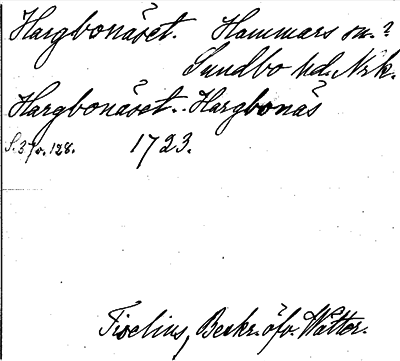 Hargbonäset. Hammars sn.?
Sundbo hd. Nrk.
Hargbonäset. Hargbonäs
S. 37 o. 128. 1723.
Tiselius, Beskr. öfv. Wätter.